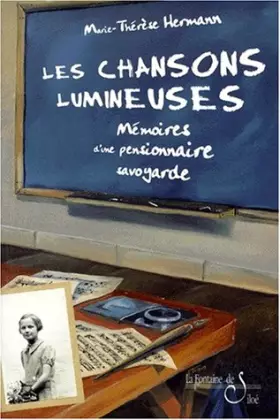 Marie-Thérèse Hermann
LES CHANSONS
LUMINEUSES
Mémoires
d'une pensionnaire
savoyarde
La Fontaine de
Siloé